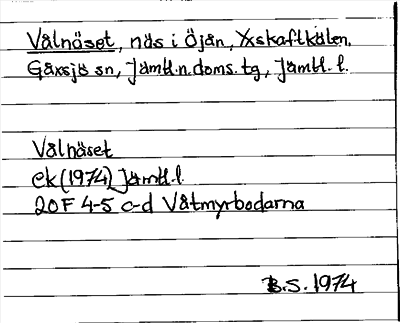 Vålnäset, näs i Öjån, Yxskaftkälen.
Gåxsjö sn, Jämtl.n.doms.tg, Jämtl. l.
Vålnäset
ek (1974) Jämtl. l
20F 4-5 c-d Våtmyrbodarna
B.S. 1974